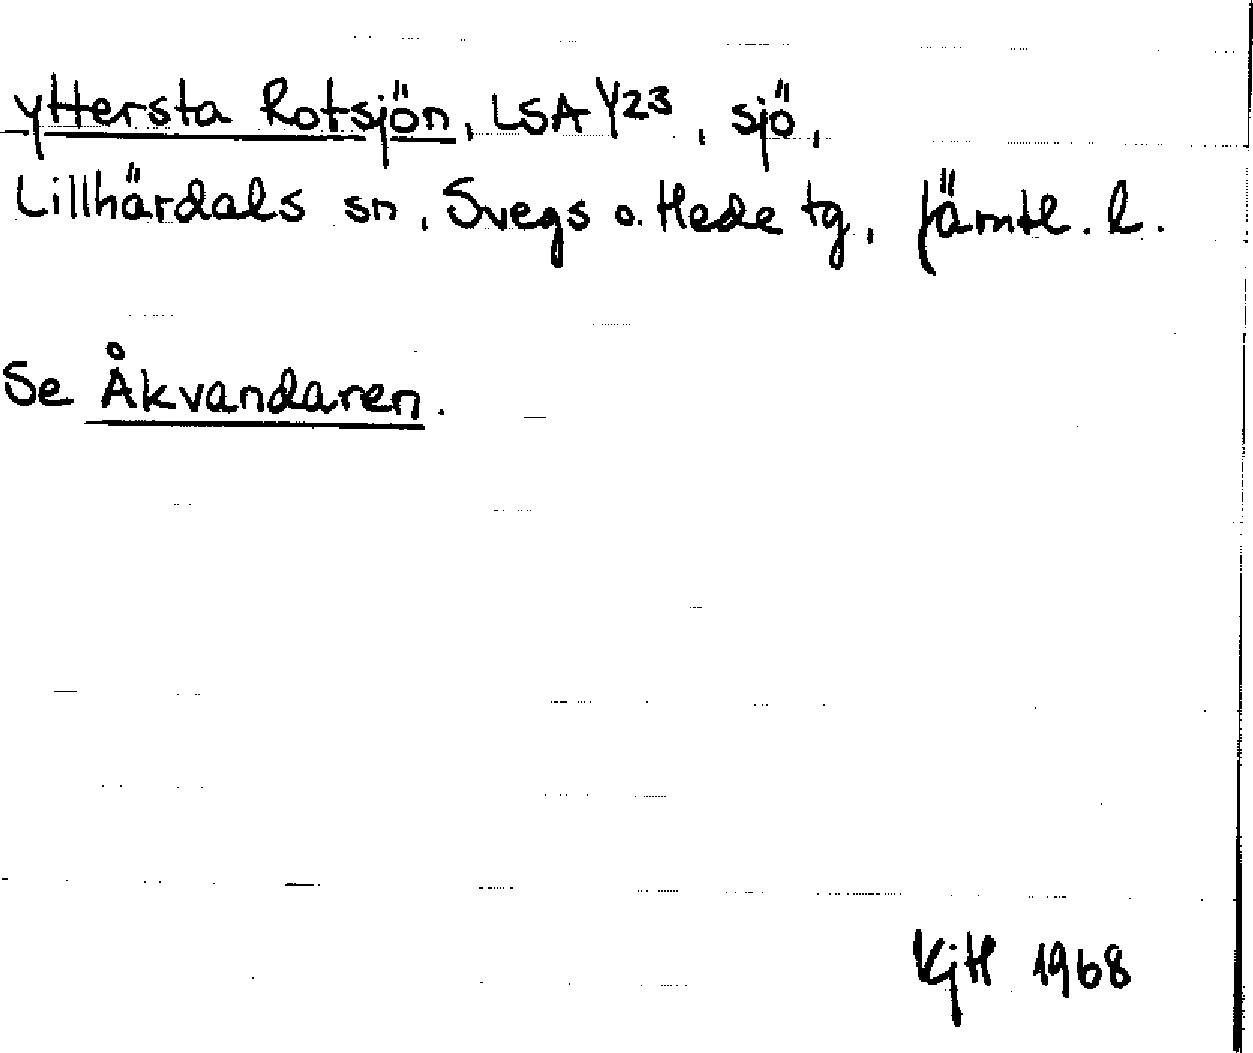 Yttersta Rotsjön, LSA Y23, sjö,
Lillhärdals sn, Svegs o. Hede tg, Jämtl. l.
Se Åkvandaren.
KjH 1968